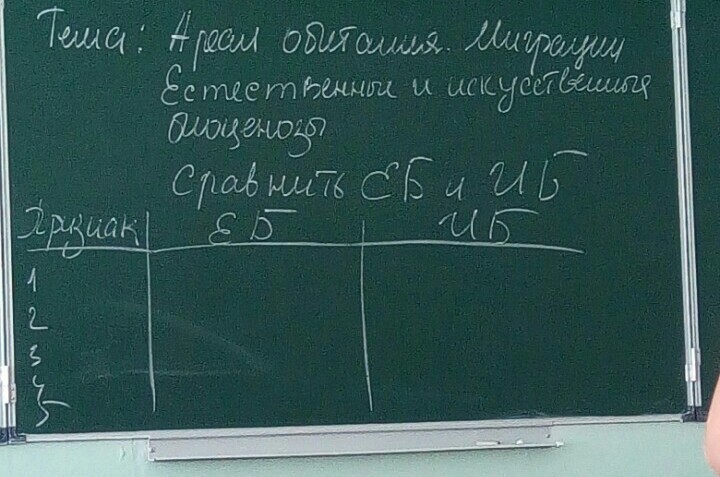 Тема: Ареал обитания. Миграции
Естественные и искусственные
биоценозы
Сравнить ЕБ и ИБ
Признак ЕБ ИБ
1
2
3
4
5